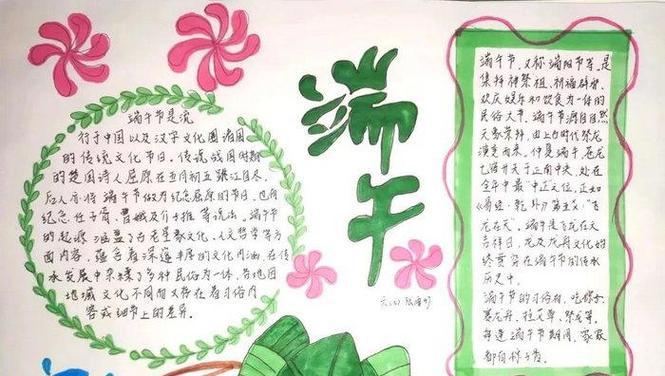 端午节是流
行于中国以及汉字文化圈诸国
的传统文化节日。传说战国时期
的楚国诗人屈原在五月初五跳江自尽,
后人亦将端午节做为纪念屈原的节日,也有
纪念伍子胥、曹娥及介子推等说法。端午节
的起源涵盖了古老星象文化、人文哲学等方
面内容,蕴含着深邃丰厚的文化内涵,在传
承发展中杂糅了多种民俗为一体,各地因
地域文化不同而又存在着习俗内
容或细节上的差异。
端午
端午节,又称端阳节等,是
集拜神祭祖、祈福辟邪、
欢庆娱乐和饮食为一体的
民俗大节。端午节源自自然
天象崇拜,由上古时代祭龙
演变而来。仲夏端午,苍龙
七宿升天于正南中央,处在
全年中最"中正"之位,正如
《易经·乾卦》第五爻:"飞
龙在天"。端午是飞龙在天
吉祥日,龙及龙舟文化的
终贯穿在端午节的传承
历史中。
端午节的习俗有:吃粽子、
赛龙舟、挂艾草、祭龙等,
每逢端午节期间,家家
都